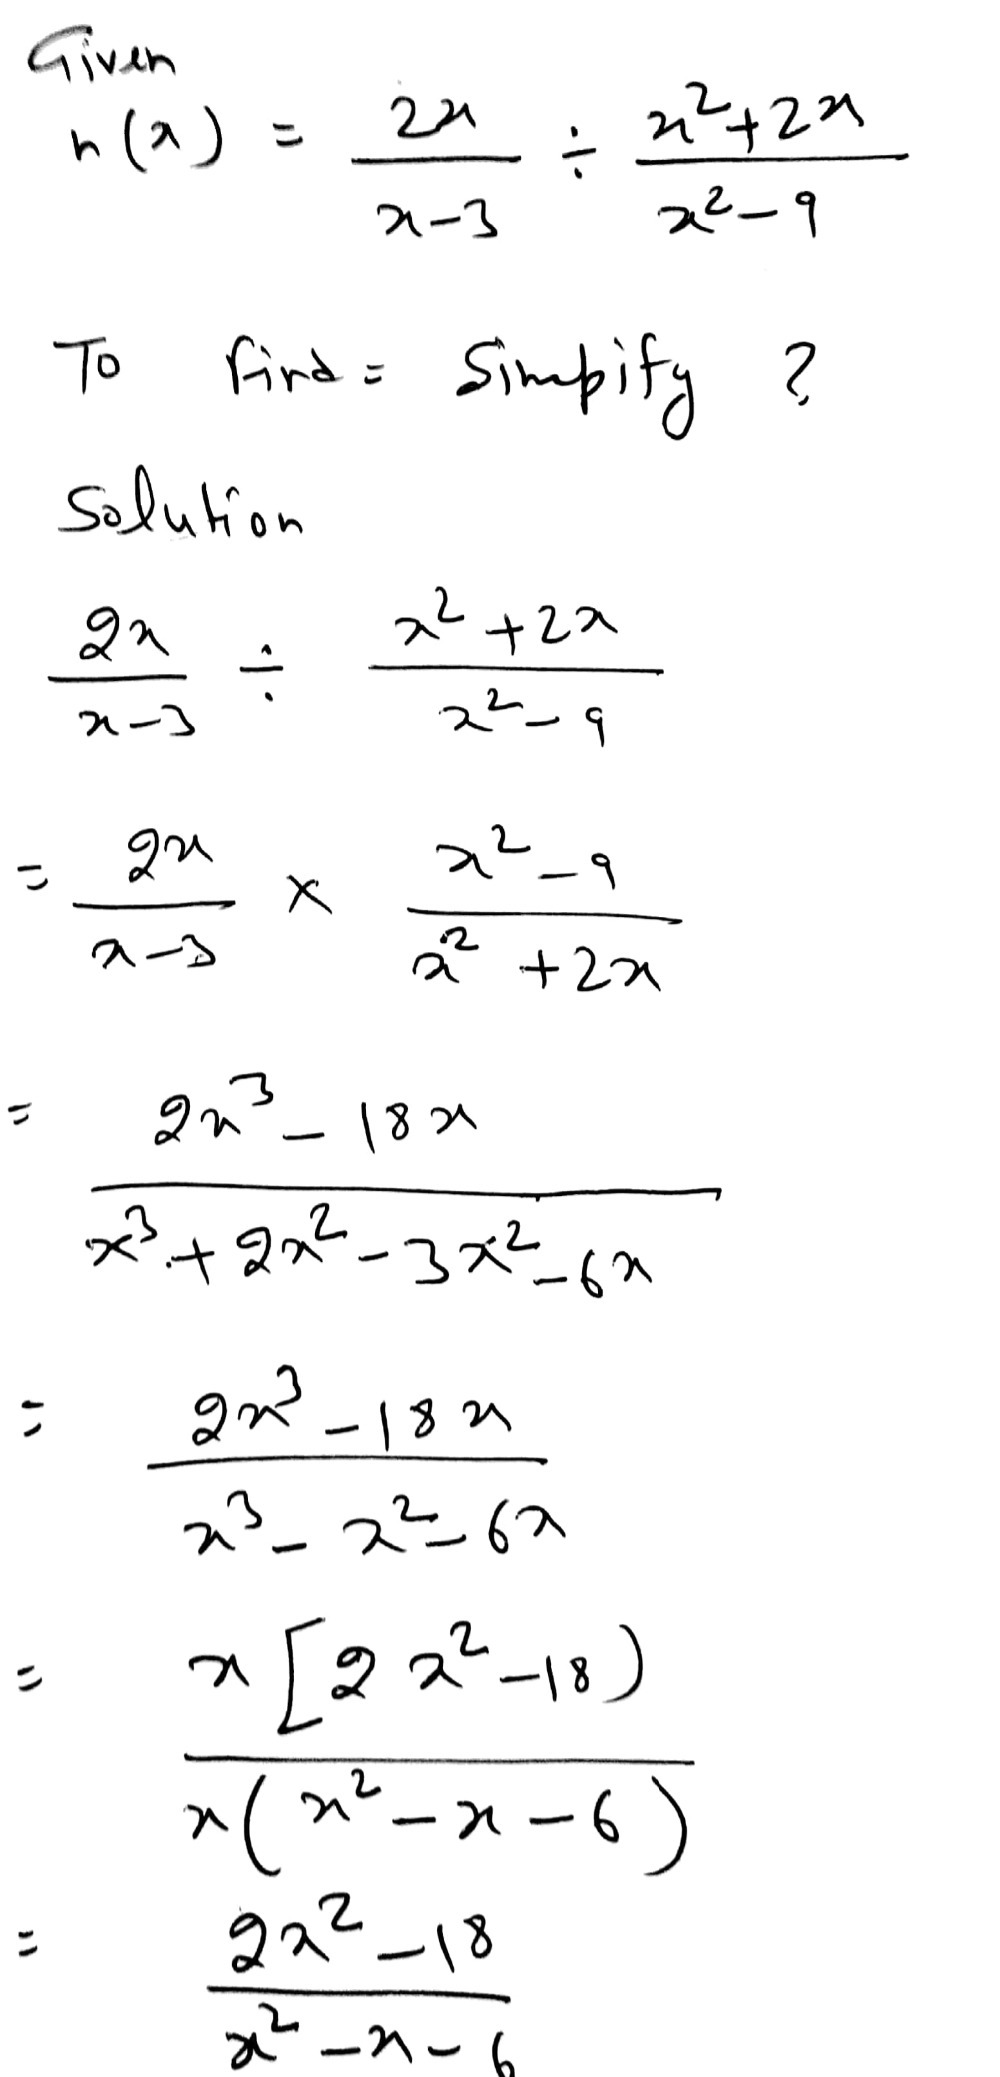 Given
h(x) = 2x/(x-3) ÷ (x²+2x)/(x²-9)
To find = Simpify ?
Solution
2x/(x-3) ÷ (x²+2x)/(x²-9)
= 2x/(x-3) × (x²-9)/(x²+2x)
= (2x³-18x)/(x³+2x²-3x²-6x)
= (2x³-18x)/(x³-x²-6x)
= x[2x²-18)/x(x²-x-6)
= (2x²-18)/(x²-x-6)